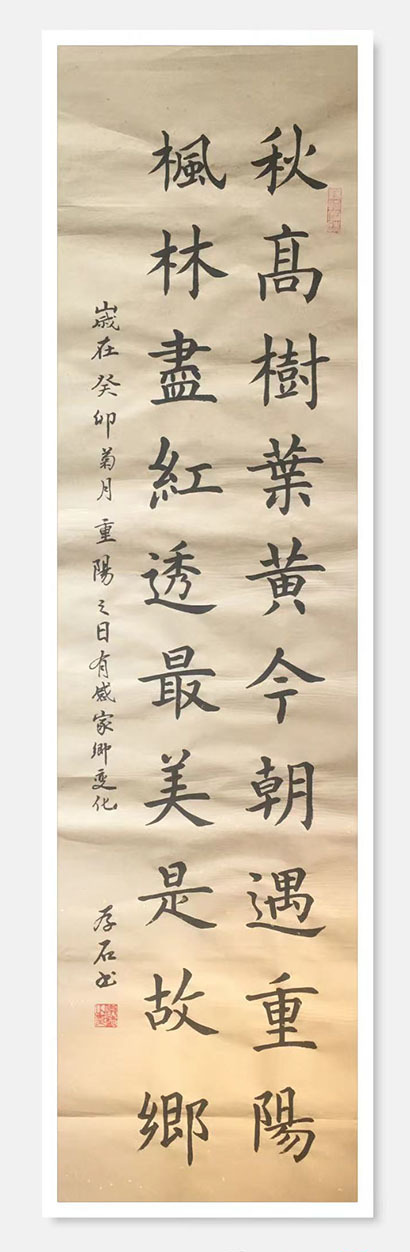 秋高樹葉黃今朝遇重陽
楓林盡紅透最美是故鄉
歲在癸卯菊月重陽之日有感家鄉變化
存石书